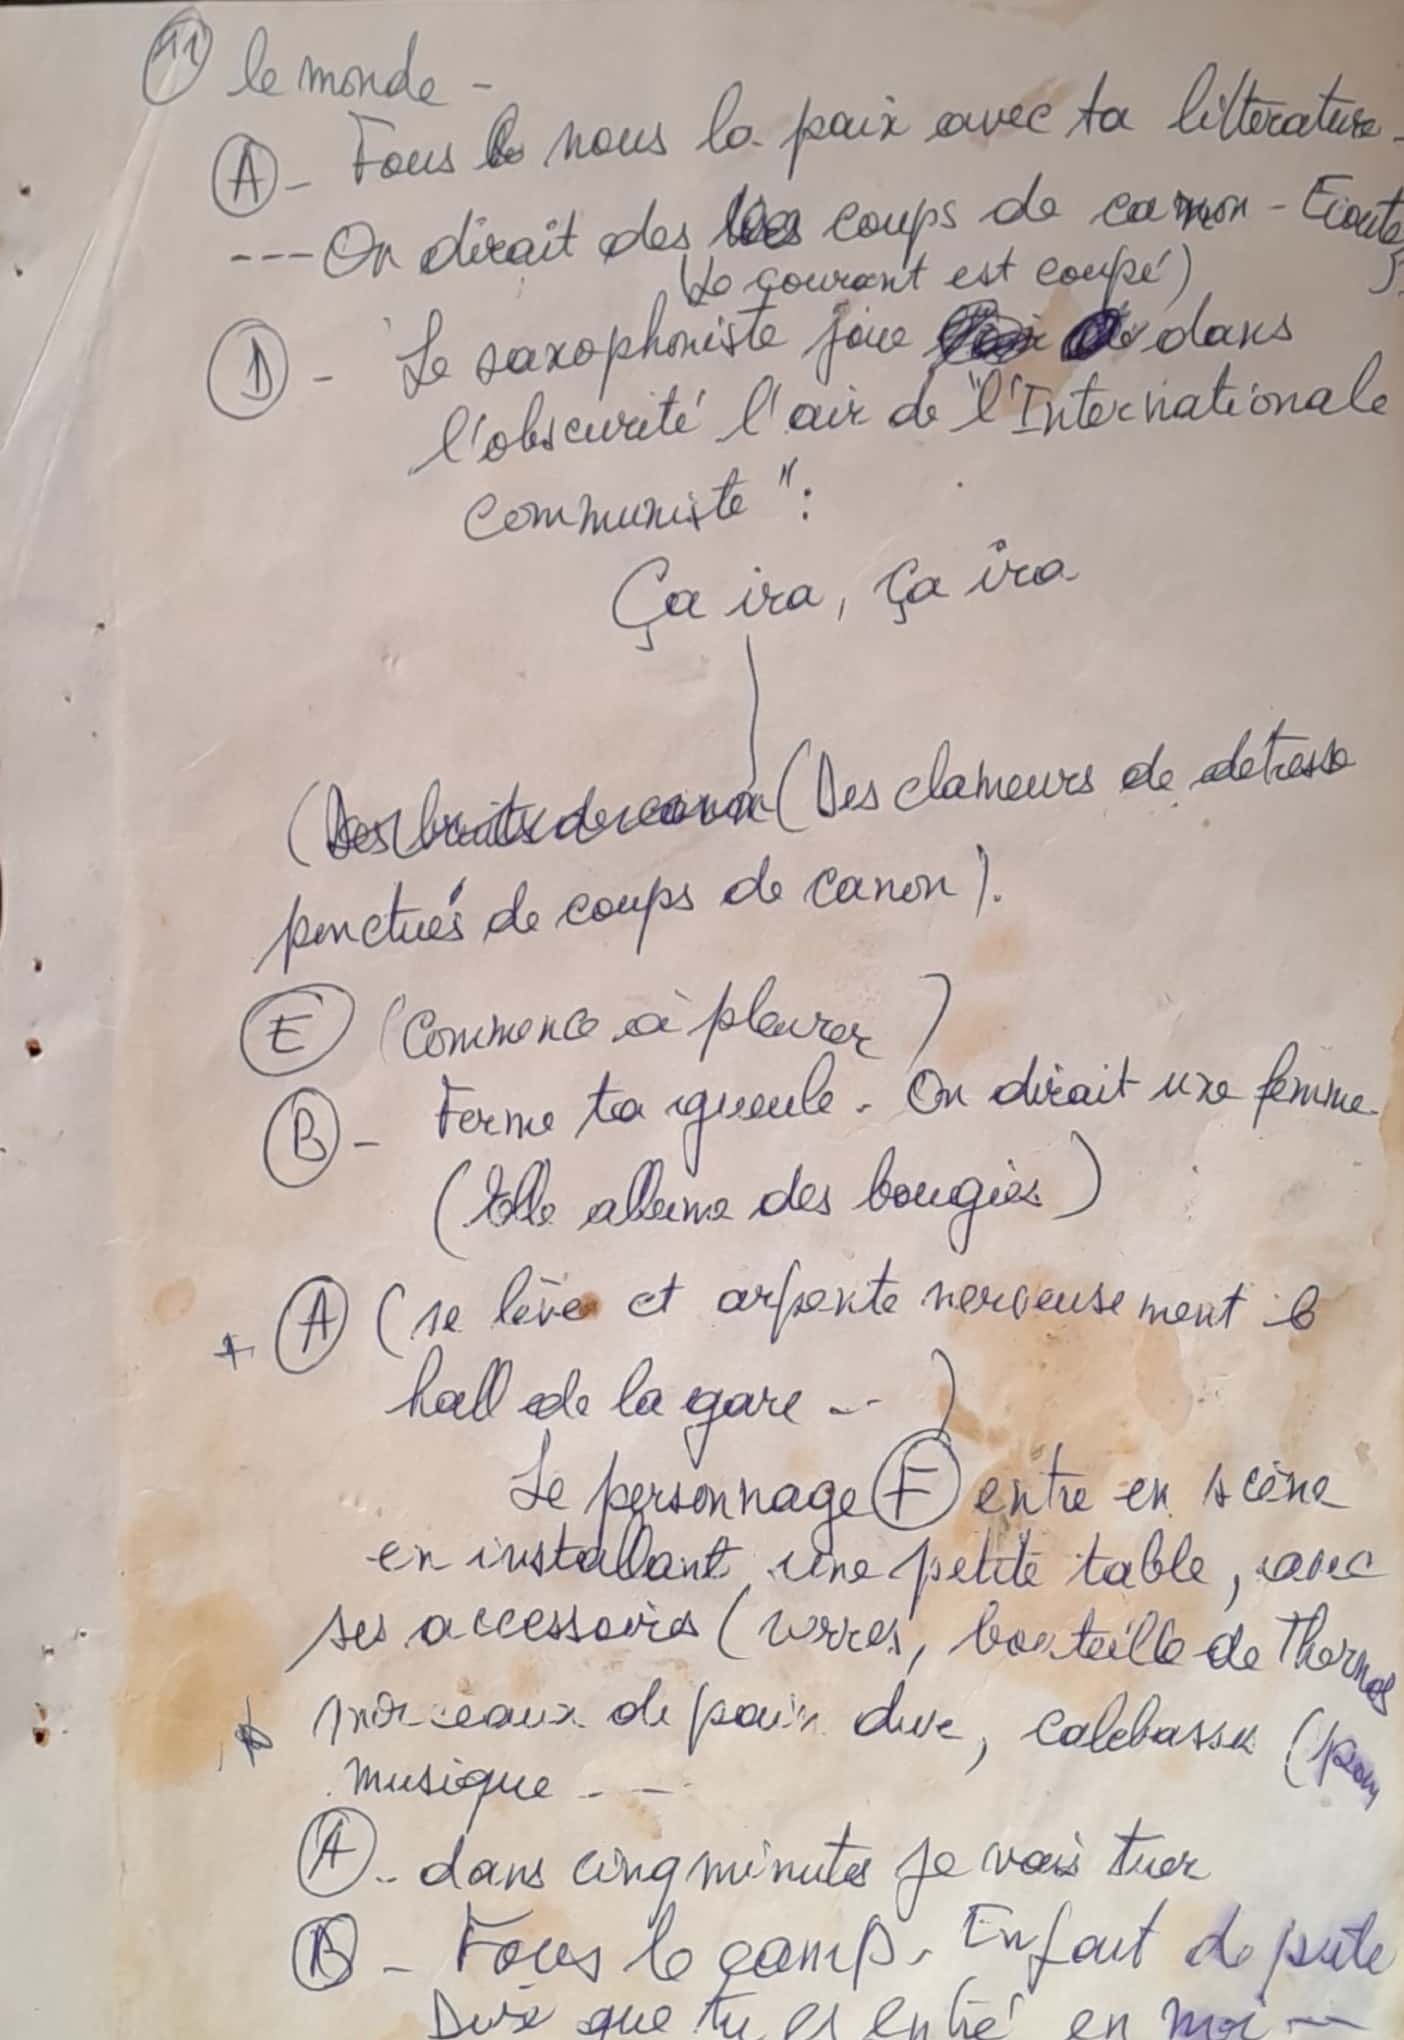 11 le monde -
A - Fous nous la paix avec ta litterature -
--- On dirait des coups de canon - Ecoute
(Le courant est coupé)
D - Le saxophoniste joue dans
l'obscurité l'air de "l'Internationale
communiste":
Ça ira, ça ira
(Des bruits de canon (Des clameurs de detresse
ponctués de coups de canon).
E (commence à pleurer)
B - Ferme ta gueule. On dirait une femme.
(Elle allume des bougies)
+ A (se lève et arpente nerveusement le
hall de la gare --)
Le personnage F entre en scène
en installant une petite table, avec
ses accessoires (verres, bouteille de Thermos
morceaux de pain dur, calebasse (pour
musique ---
A -- dans cinq minutes je vais tuer
B - Fous le camp. Enfant de pute
Dire que tu es entré en moi --